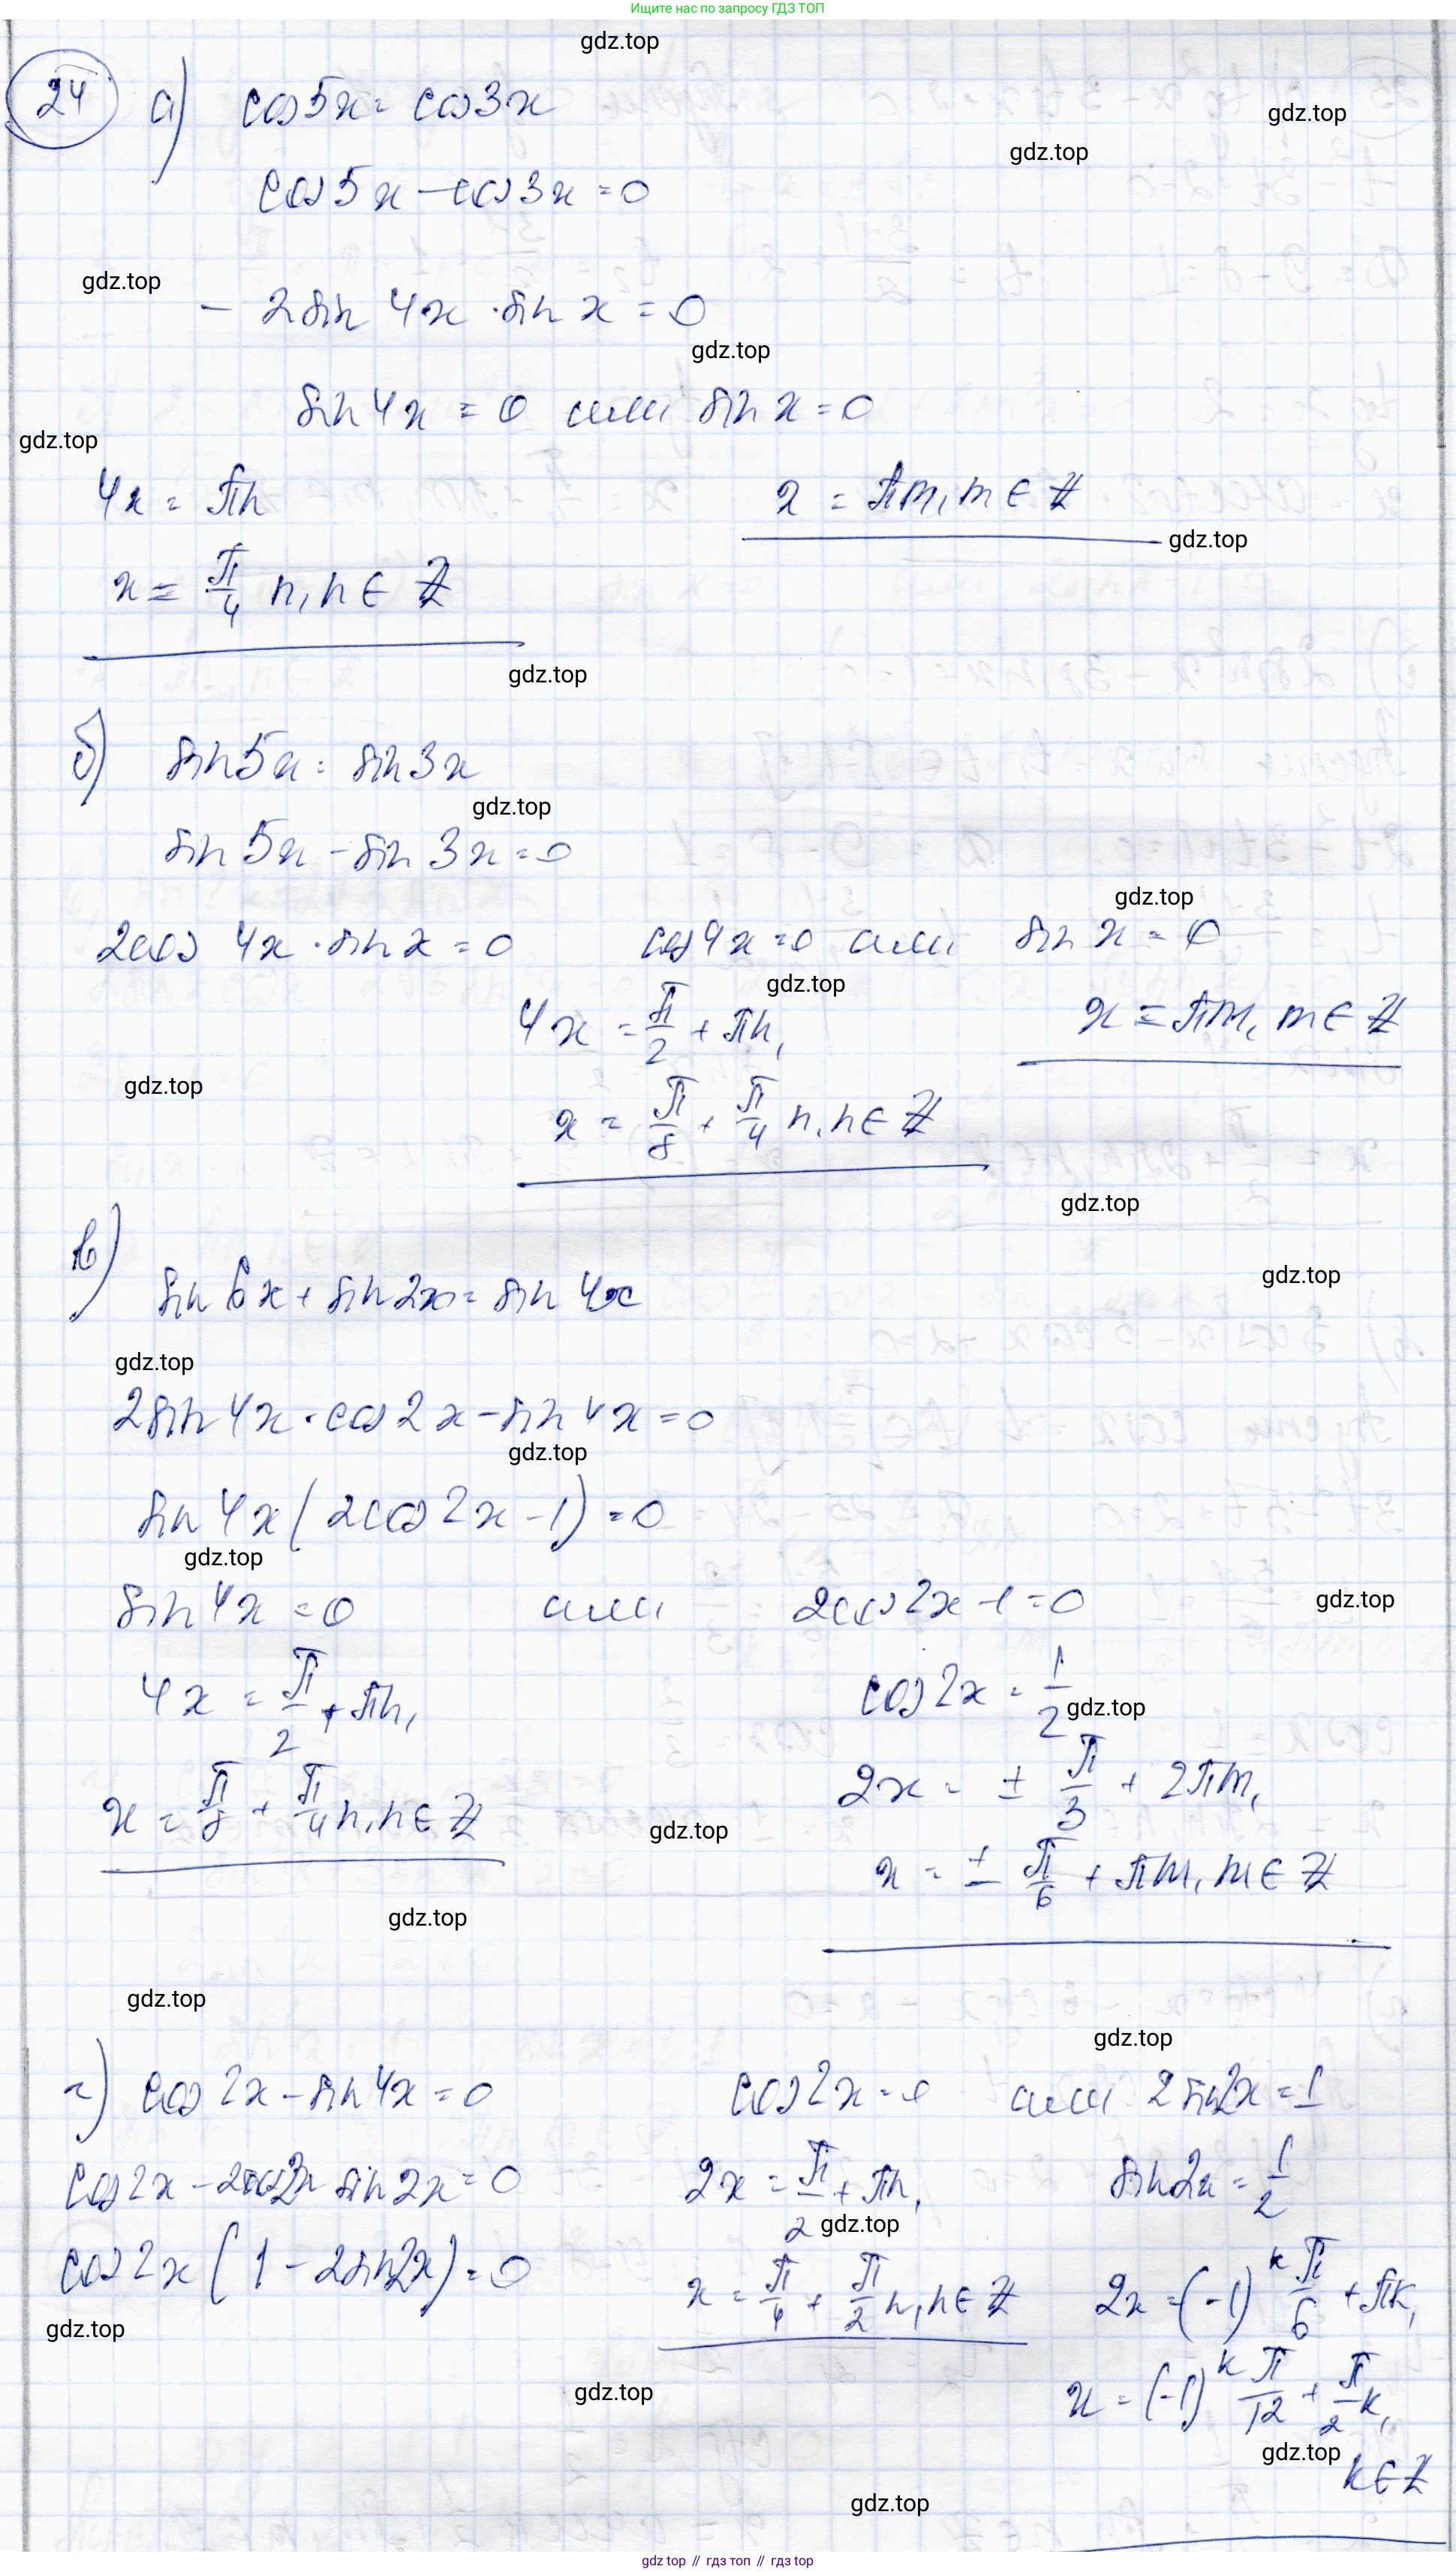 Ищите нас по запросу ГДЗ ТОП
gdz.top
24 а) cos5x = cos3x
gdz.top
gdz.top
cos5x - cos3x = 0
gdz.top
- 2sin 4x · sin x = 0
gdz.top
sin 4x = 0 или sin x = 0
gdz.top
4x = πn
x = πm, m ∈ Z
gdz.top
x = π/4 n, n ∈ Z
gdz.top
б) sin5x = sin3x
gdz.top
sin 5x - sin 3x = 0
gdz.top
2cos 4x · sin x = 0 cos4x = 0 или sin x = 0
gdz.top
4x = π/2 + πn, x = πm, m ∈ Z
gdz.top
x = π/8 + π/4 n, n ∈ Z
gdz.top
в)
gdz.top
sin 6x + sin 2x = sin 4x
gdz.top
2sin 4x · cos2x - sin 4x = 0
gdz.top
sin 4x (2cos 2x - 1) = 0
gdz.top
sin 4x = 0 или 2cos 2x - 1 = 0
gdz.top
4x = π/2 + πn, cos 2x = 1/2
gdz.top
2x = ± π/3 + 2πm,
x = π/8 + π/4 n, n ∈ Z
gdz.top
x = ± π/6 + πm, m ∈ Z
gdz.top
gdz.top
gdz.top
г) cos 2x - sin 4x = 0 cos 2x = 0 или 2 sin2x = 1
cos2x - 2cos2x sin 2x = 0 2x = π/2 + πn, sin2x = 1/2
gdz.top
cos 2x (1 - 2sin2x) = 0 x = π/4 + π/2 n, n ∈ Z 2x = (-1)^k π/6 + πk,
gdz.top
gdz.top
x = (-1)^k π/12 + π/2 k,
gdz.top
k ∈ Z
gdz.top
gdz top // гдз топ // гдз top